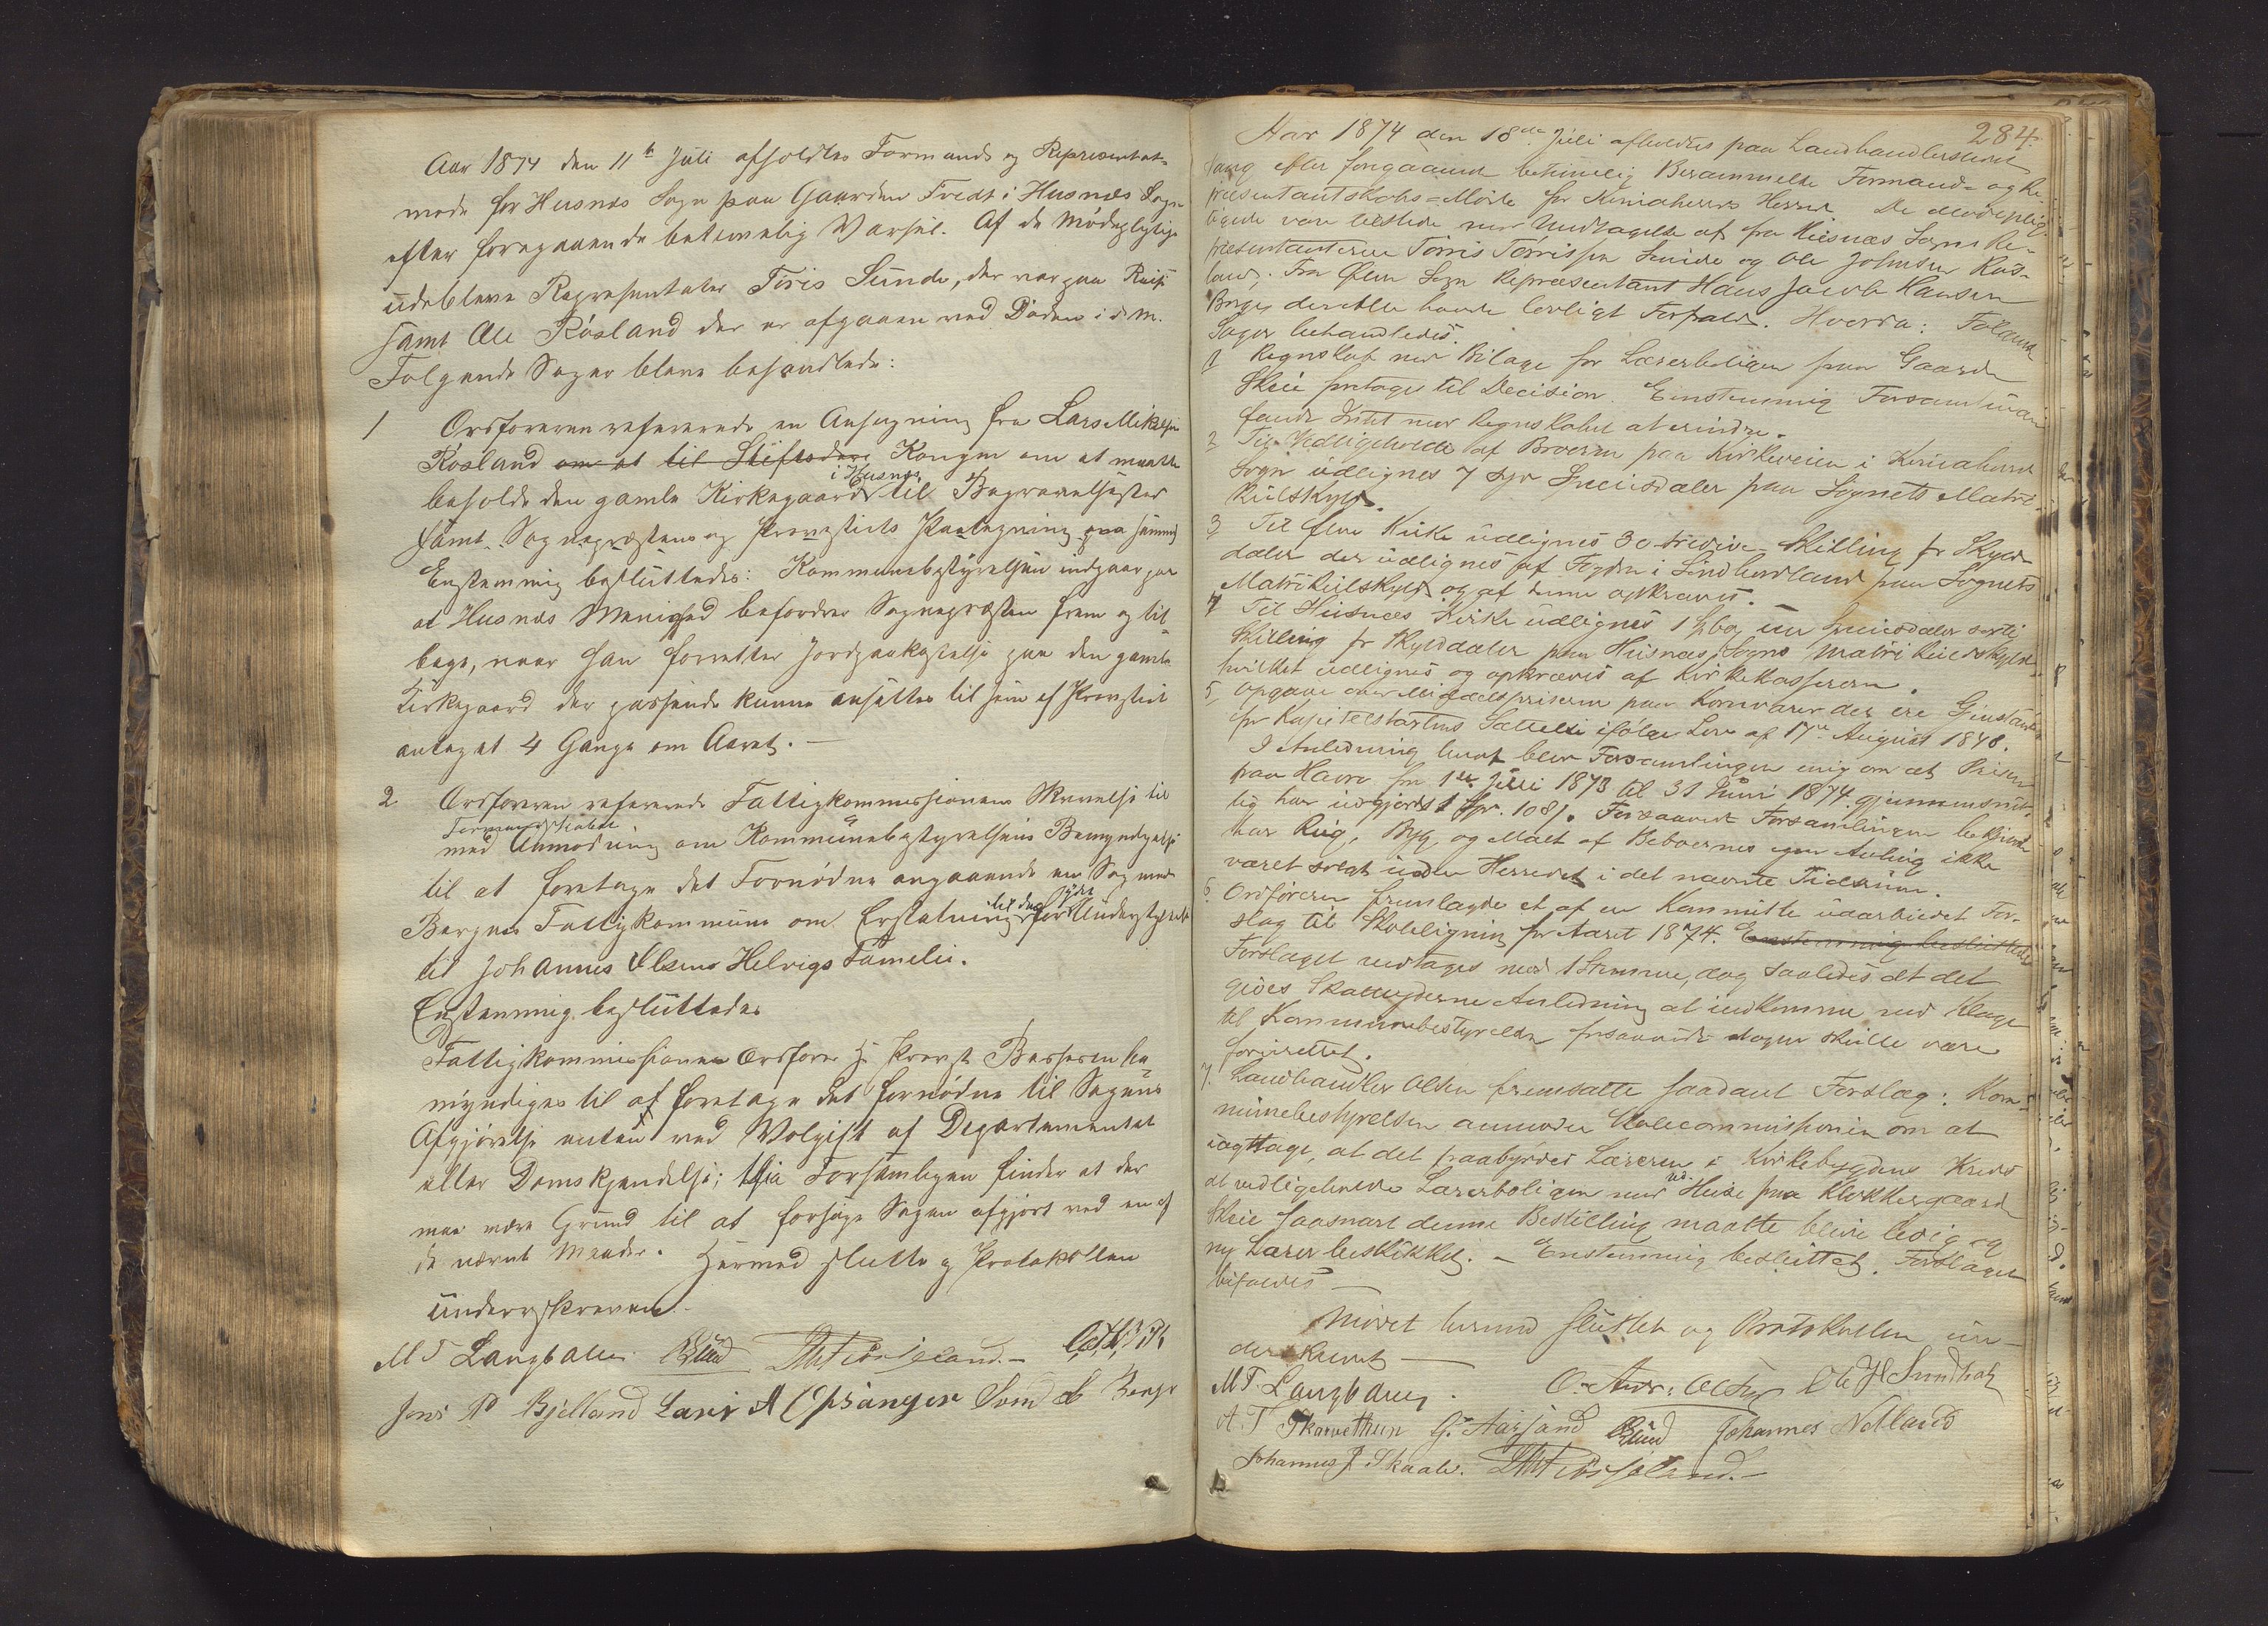 Aar 1874 den 11te Juli afholdtes Formands og Representant-
møde for Husnæs Sogn paa Gaarden Tvedt i Husnæs Sogn
efter foregaaende betimelig Varsel. Af de Mødepligtige
udebleve Representater Tøris Sunde, der var paa Reise
samt Ole Røsland der er afgaaen ved Døden i d. M.
Følgende Sager bleve behandlede:
1 Ordføreren refererede en Ansøgning fra Lars Mikelsen
Røsland om at til Stiftsdire Kongen om at maatte
beholde den gamle Kirkegaard i Husnæs til Begravelsested
samt Sognepræstens og Provstiets Paategning paa samme
Enstemmig besluttedes: Kommunebestyrelsen indgaar paa
at Husnæs Menighed befordrer Sognepræsten frem og til-
bage, naar han forretter Jordpaakastelse paa den gamle
Kirkegaard der passende kunne ansættes til som af Provstiet
antaget 4 Gange om Aaret. —
2 Ordføreren refererede Fattigkommissionens Skrivelse til
Formandskabet
med Anmodning om Kommunebestyrelsens Bemyndigelse
til at foretage det Fornødne angaaende en Sag med
Bergens Fattigkommune om Erstatning for til den ydte Understøttelse
til Johannes Olsens Helvigs Familie.
Enstemmig besluttedes
Fattigkommissionens Ordfører Hr Provst Bassesen be-
myndiges til at foretage det fornødne til Sagens
Afgjørelse enten ved Volgift af Departementet
eller Domskjendelse; thi Forsamlingen finder at der
maa være Grund til at forsøge Sagen afgjort ved en af
de nævnt Maader. Hermed sluttet og Protokollen
underskreven.
M T Langballe BLund
Jens P Bjelland Lars A Opsanger Svend L Berge
284.
Aar 1874 den 18de Juli afholdtes paa Landhandlerstedet
efter forgaaende betimelig Berammelse Formands- og Re-
presentantskabs-Møde for Kvindherreds Herred. De Mødeplig-
tigede vare tilstede med Undtagelse af fra Husnæs Sogn Re-
presentanterne Tørris Tørrissen Sunde og Ole Johnsen Røs-
land, Fra Ølve Sogn Representant Hans Jacob Hansen
Berge, derablle havde lovligt Forfald. Hvorda: Følgende
Sager behandledes.
1 Regnskab med Bilage for Lærerboligen paa Gaarden
Skeie foretages til Decision. Einstemmig Forsamlingen
fandt Intet mod Regnskabet at erindre.
2 Til Vedligeholdelse af Broerne paa Kirkeveien i Kvindherred
Sogn udlignes 7 syv Speciesdaler paa Sognets Matri-
kulskyld.
3 Til Ølve Kirke udlignes 30 tredive Skilling pr Skyld-
daler der udlignes af Fogden i Søndhordland paa Sognets
Matrikulskyld og af denne opkræves.
4 Til Husnæs Kirke udlignes 1 Spd og en Speciesdaler sexti
Skilling pr Skylddaler paa Husnæs Sogns Matrikulskyld
hvilket udlignes og opkræves af Kirkekasseren.
5 Opgave over Middelspriserne paa Kornvarer der ere Gjenstande
for Kapitelstaxtens Sættelse ifølge Lov af 17de August 1848.
I Anledning heraf blev Forsamlingen enig om at Prisen
paa Havre fra 1ste Juli 1873 til 31 Juni 1874 gjennemsnit-
lig har udgjort 1 Spd. 108 s. Forsaavidt Forsamlingen bekjendt
har Rug, Byg og Malt af Beboernes egen Avling ikke
været solgt inden Herredet i det nævnte Tidsrum.
6 Ordføreren fremlagde et af en Kommitte udarbeidet For-
slag til Skoleligning for Aaret 1874. Enstemmig besluttedes
Forslaget vedtages med 1 Stemme, dog saaledes at det
gives Skatteyderne Anledning at indkomme med Klage
til Kommunebestyrelsen forsaavidt nogen skulle være
forurettet.
7. Landhandler Olsen fremsatte saadant Forslag: Kom-
munebestyrelsen anmoder Skolecommissionen om at
iagttage, at det paabyrdes Læreren i Kirkebygdens Kreds
at vedligeholde Lærerboligen med Huse paa Klokkergaard
Skeie saasnart denne Bestilling maatte blive ledig og
ny Lærer beskikket. — Enstemmig besluttet. Forslaget
bifaldes
Mødet hermed sluttet og Protokollen un-
derskrevet —
M T. Langballe. O. Andr: Olsen Ole H Sundhol
A. T Skarvethun G. Aarsand BLund Johannes Nelland
Johannes J Skaale.